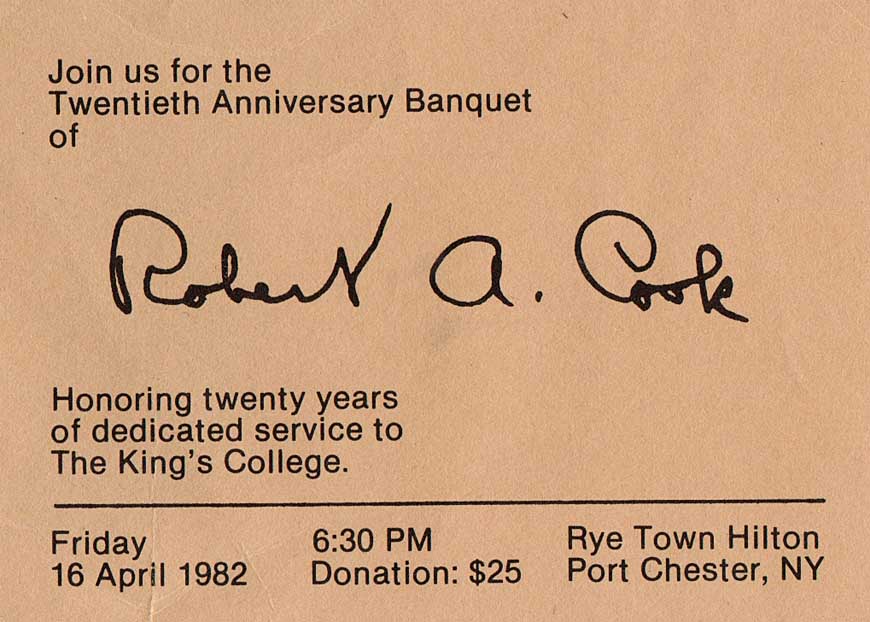 Join us for the
Twentieth Anniversary Banquet
of
Robert A. Cook
Honoring twenty years
of dedicated service to
The King's College.
Friday 6:30 PM Rye Town Hilton
16 April 1982 Donation: $25 Port Chester, NY